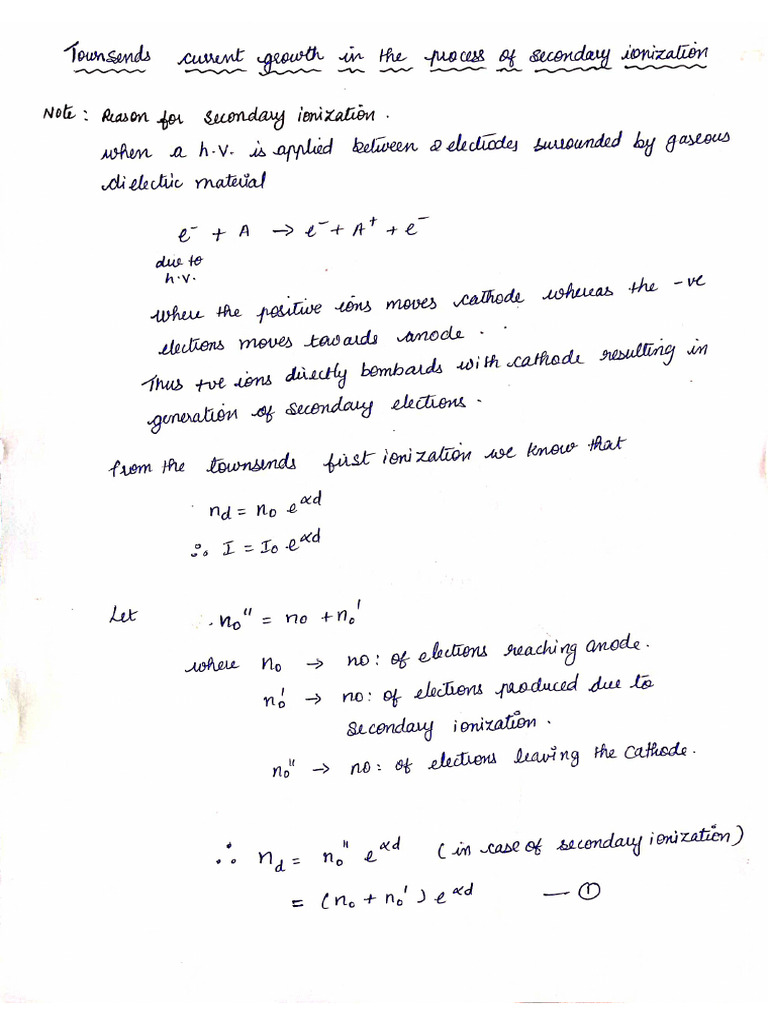 Townsends current growth in the process of secondary ionization
Note: Reason for secondary ionization.
when a h.v. is applied between 2 electrodes surrounded by gaseous
dielectric material
e⁻ + A → e⁻ + A⁺ + e⁻
due to
h.v.
where the positive ions moves cathode whereas the -ve
electrons moves towards anode.
Thus +ve ions directly bombards with cathode resulting in
generation of secondary electrons.
from the townsends first ionization we know that
n_d = n₀ e^αd
∴ I = I₀ · e^αd
Let n₀'' = n₀ + n₀'
where n₀ → no: of electrons reaching anode.
n₀' → no: of electrons produced due to
secondary ionization.
n₀'' → no: of electrons leaving the cathode.
∴ n_d = n₀'' e^αd (in case of secondary ionization)
= (n₀ + n₀') e^αd — ①